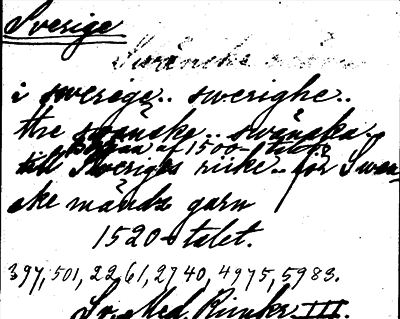 Sverige
Swänske
i swerige.. swerighe..
the swänske.. swänska..
början af 1500-talet
till Sveriges rike.. för Swen-
ske mändz garn
1520-talet.
397,501,2261,2740,4975,5983.
Sv. Med. Rimkr. III.